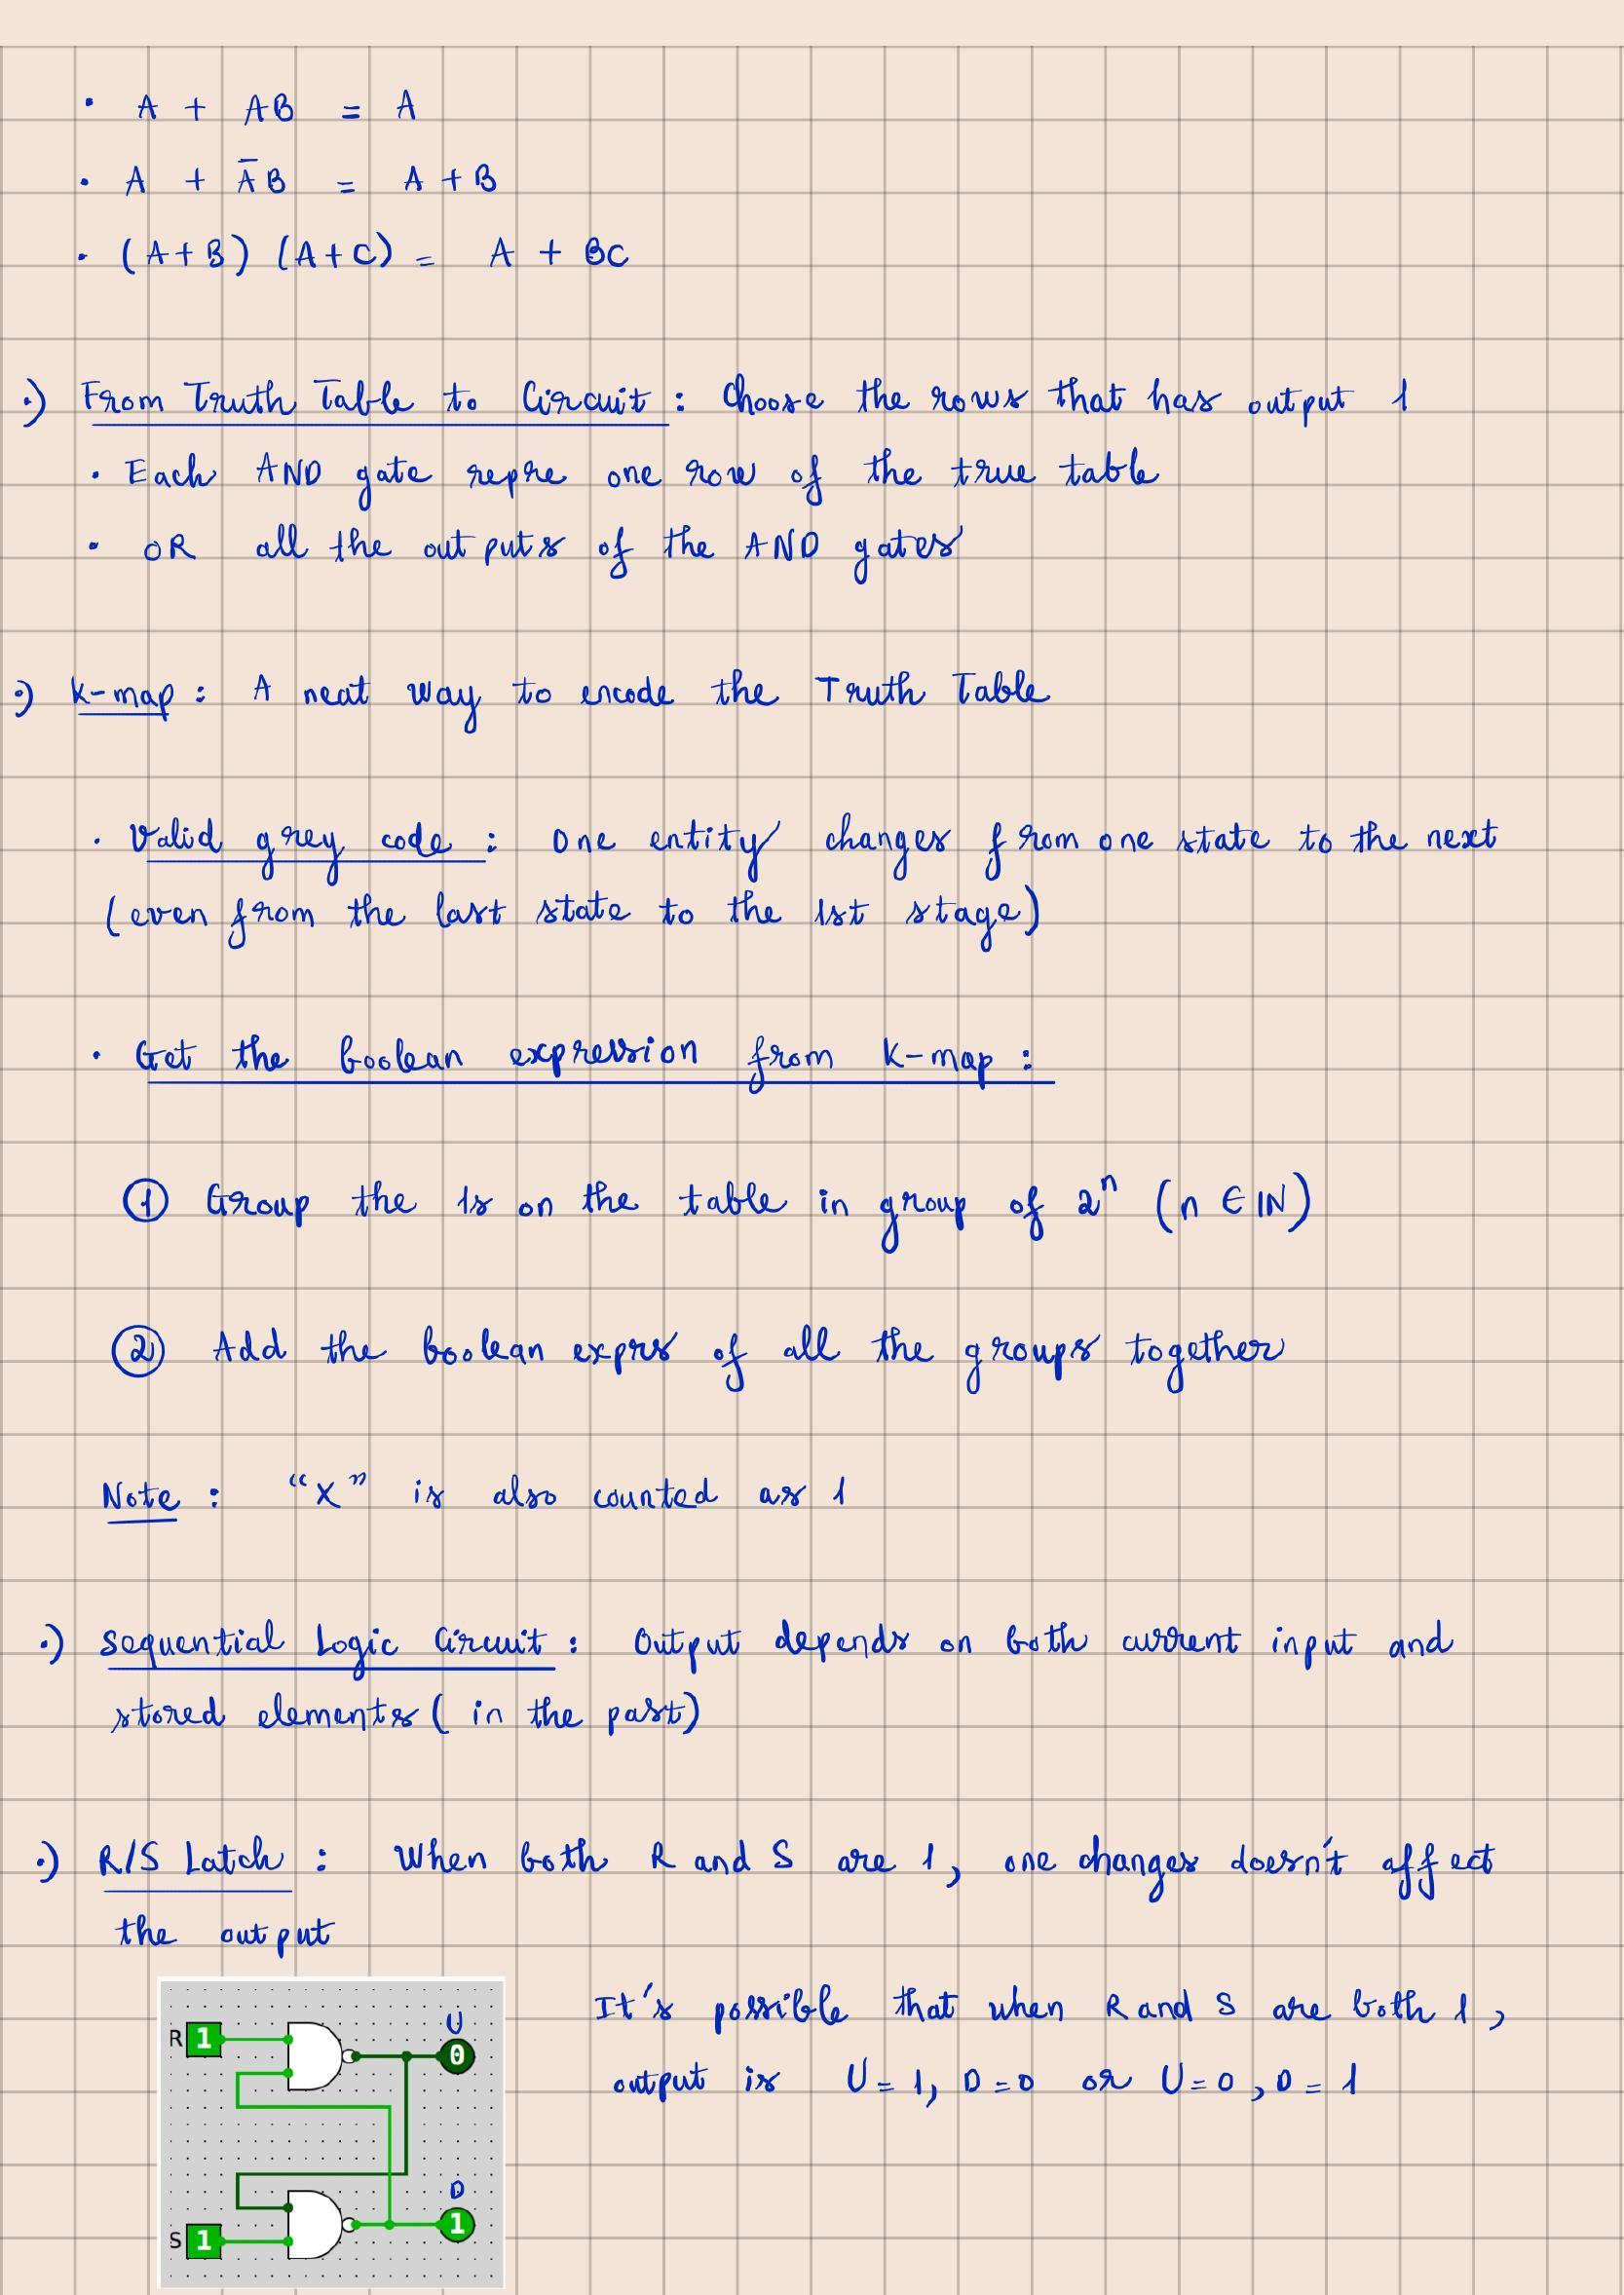 • A + AB = A
• A + A̅B = A + B
• (A+B) (A+C) = A + BC
•) From Truth Table to Circuit : Choose the rows that has output 1
• Each AND gate repre one row of the true table
• OR all the outputs of the AND gates
•) K-map : A neat way to encode the Truth Table
• Valid grey code : One entity changes from one state to the next
(even from the last state to the 1st stage)
• Get the boolean expression from K-map :
① Group the 1s on the table in group of 2ⁿ (n ∈ ℕ)
② Add the boolean exprs of all the groups together
Note : "X" is also counted as 1
•) Sequential Logic Circuit : Output depends on both current input and
stored elements ( in the past)
•) R/S Latch : When both R and S are 1, one changes doesn't affect
the output
It's possible that when R and S are both 1,
output is U = 1, D = 0 or U = 0, D = 1
U
R 1 0
D
S 1 1